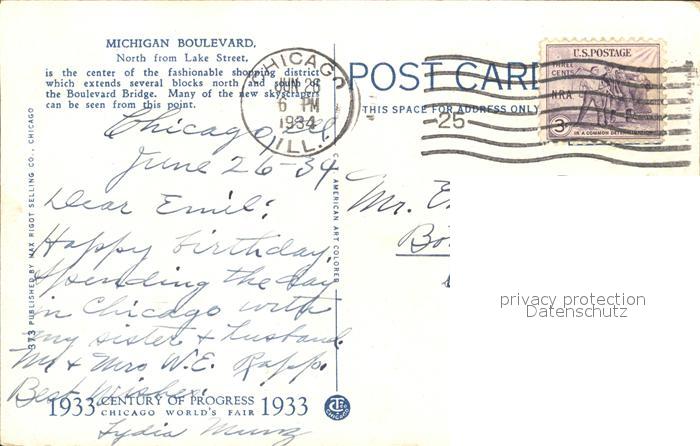 MICHIGAN BOULEVARD,
North from Lake Street,
is the center of the fashionable shopping district
which extends several blocks north and south of
the Boulevard Bridge. Many of the new skyscrapers
can be seen from this point.
CHICAGO
JUN 26
6 PM
1934
ILL.
POST CARD
THIS SPACE FOR ADDRESS ONLY
25
U.S. POSTAGE
THREE
CENTS
NRA
3¢
IN A COMMON DETERMINATION
Chicago, Ill
June 26-34
Dear Emil:
Happy birthday.
Spending the day
in Chicago with
my sister & husband
Mr & Mrs W.E. Rapp.
Best Wishes.
Lydia
Mr. E.
Bo
privacy protection
Datenschutz
373 PUBLISHED BY MAX RIGOT SELLING CO., CHICAGO
AMERICAN ART COLORED
1933 CENTURY OF PROGRESS 1933
CHICAGO WORLD'S FAIR
CHICAGO